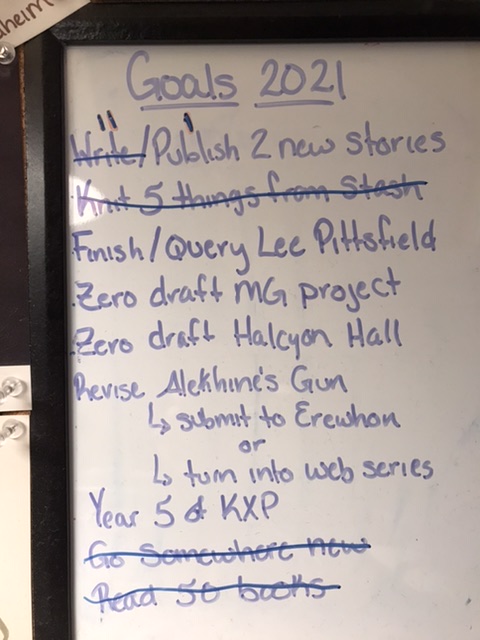 Goals 2021
Write/Publish 2 new stories
Knit 5 things from Stash
Finish/Query Lee Pittsfield
Zero draft MG project
Zero draft Halcyon Hall
Revise Alekhine's Gun
↳ submit to Erewhon
or
↳ turn into web series
Year 5 of KXP
Go Somewhere new
Read 50 books